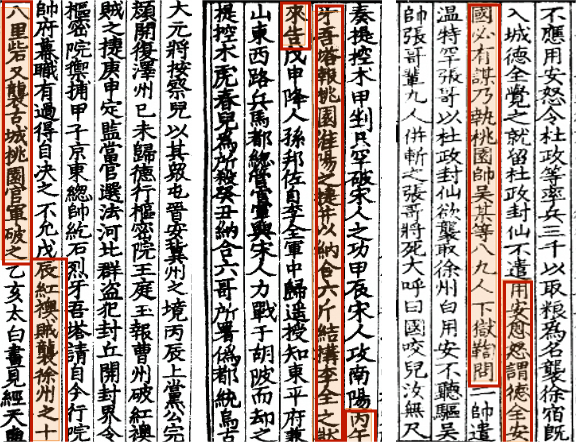 不應用安怒令杜政等率兵三千以取粮為名襲徐宿既
入城德全覺之就留杜政封仙不遣用安愈怒謂德全安
國必有謀乃執桃園帥吳某等八九人下獄鞫問二帥遣
温特罕張哥以杜政封仙欲襲取徐州白用安不聽驅吳
帥張哥輩九人併斬之張哥將死大呼曰國咬兒汝無尺
奏提控木甲剉只罕破宋人之功甲辰宋人攻南陽丙午
牙吾塔報桃園淮陽之捷并以納合六斤結搆李全之狀
來告戊申降人孫邦佐自李全軍中歸遥授知東平府兼
山東西路兵馬都總管官軍與宋人力戰于胡陂而却之
提控木虎春兒為所殺癸丑納合六哥所署偽都統烏古
大元將按察兒以其衆屯晉安冀州之境丙辰上黨公完
顔開復澤州己未歸德行樞密院王庭玉報曹州破紅襖
賊之捷庚申定監當官選法河北群盗犯封丘開封界令
樞密院禦捕甲子京東總帥紇石烈牙吾塔請自今行院
帥府幕職有過得自決之不允戊辰紅襖賊襲徐州之十
八里砦又襲古城桃園官軍破之乙亥太白晝見經天